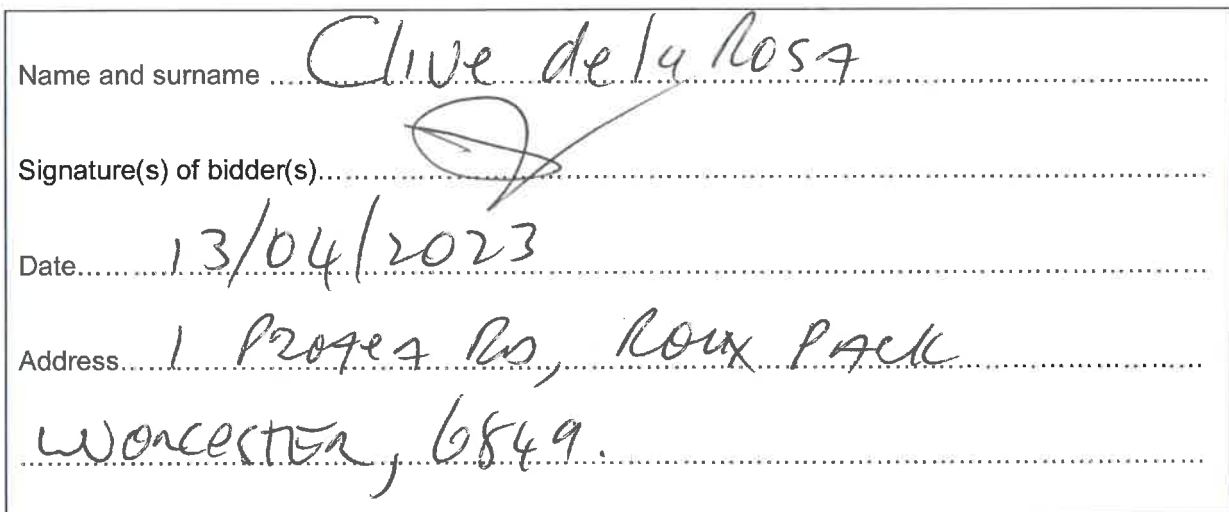 Name and surname Clive de la Rosa
Signature(s) of bidder(s)
Date 13/04/2023
Address 1 Protea Rd, Roux Park
Worcester, 6849.